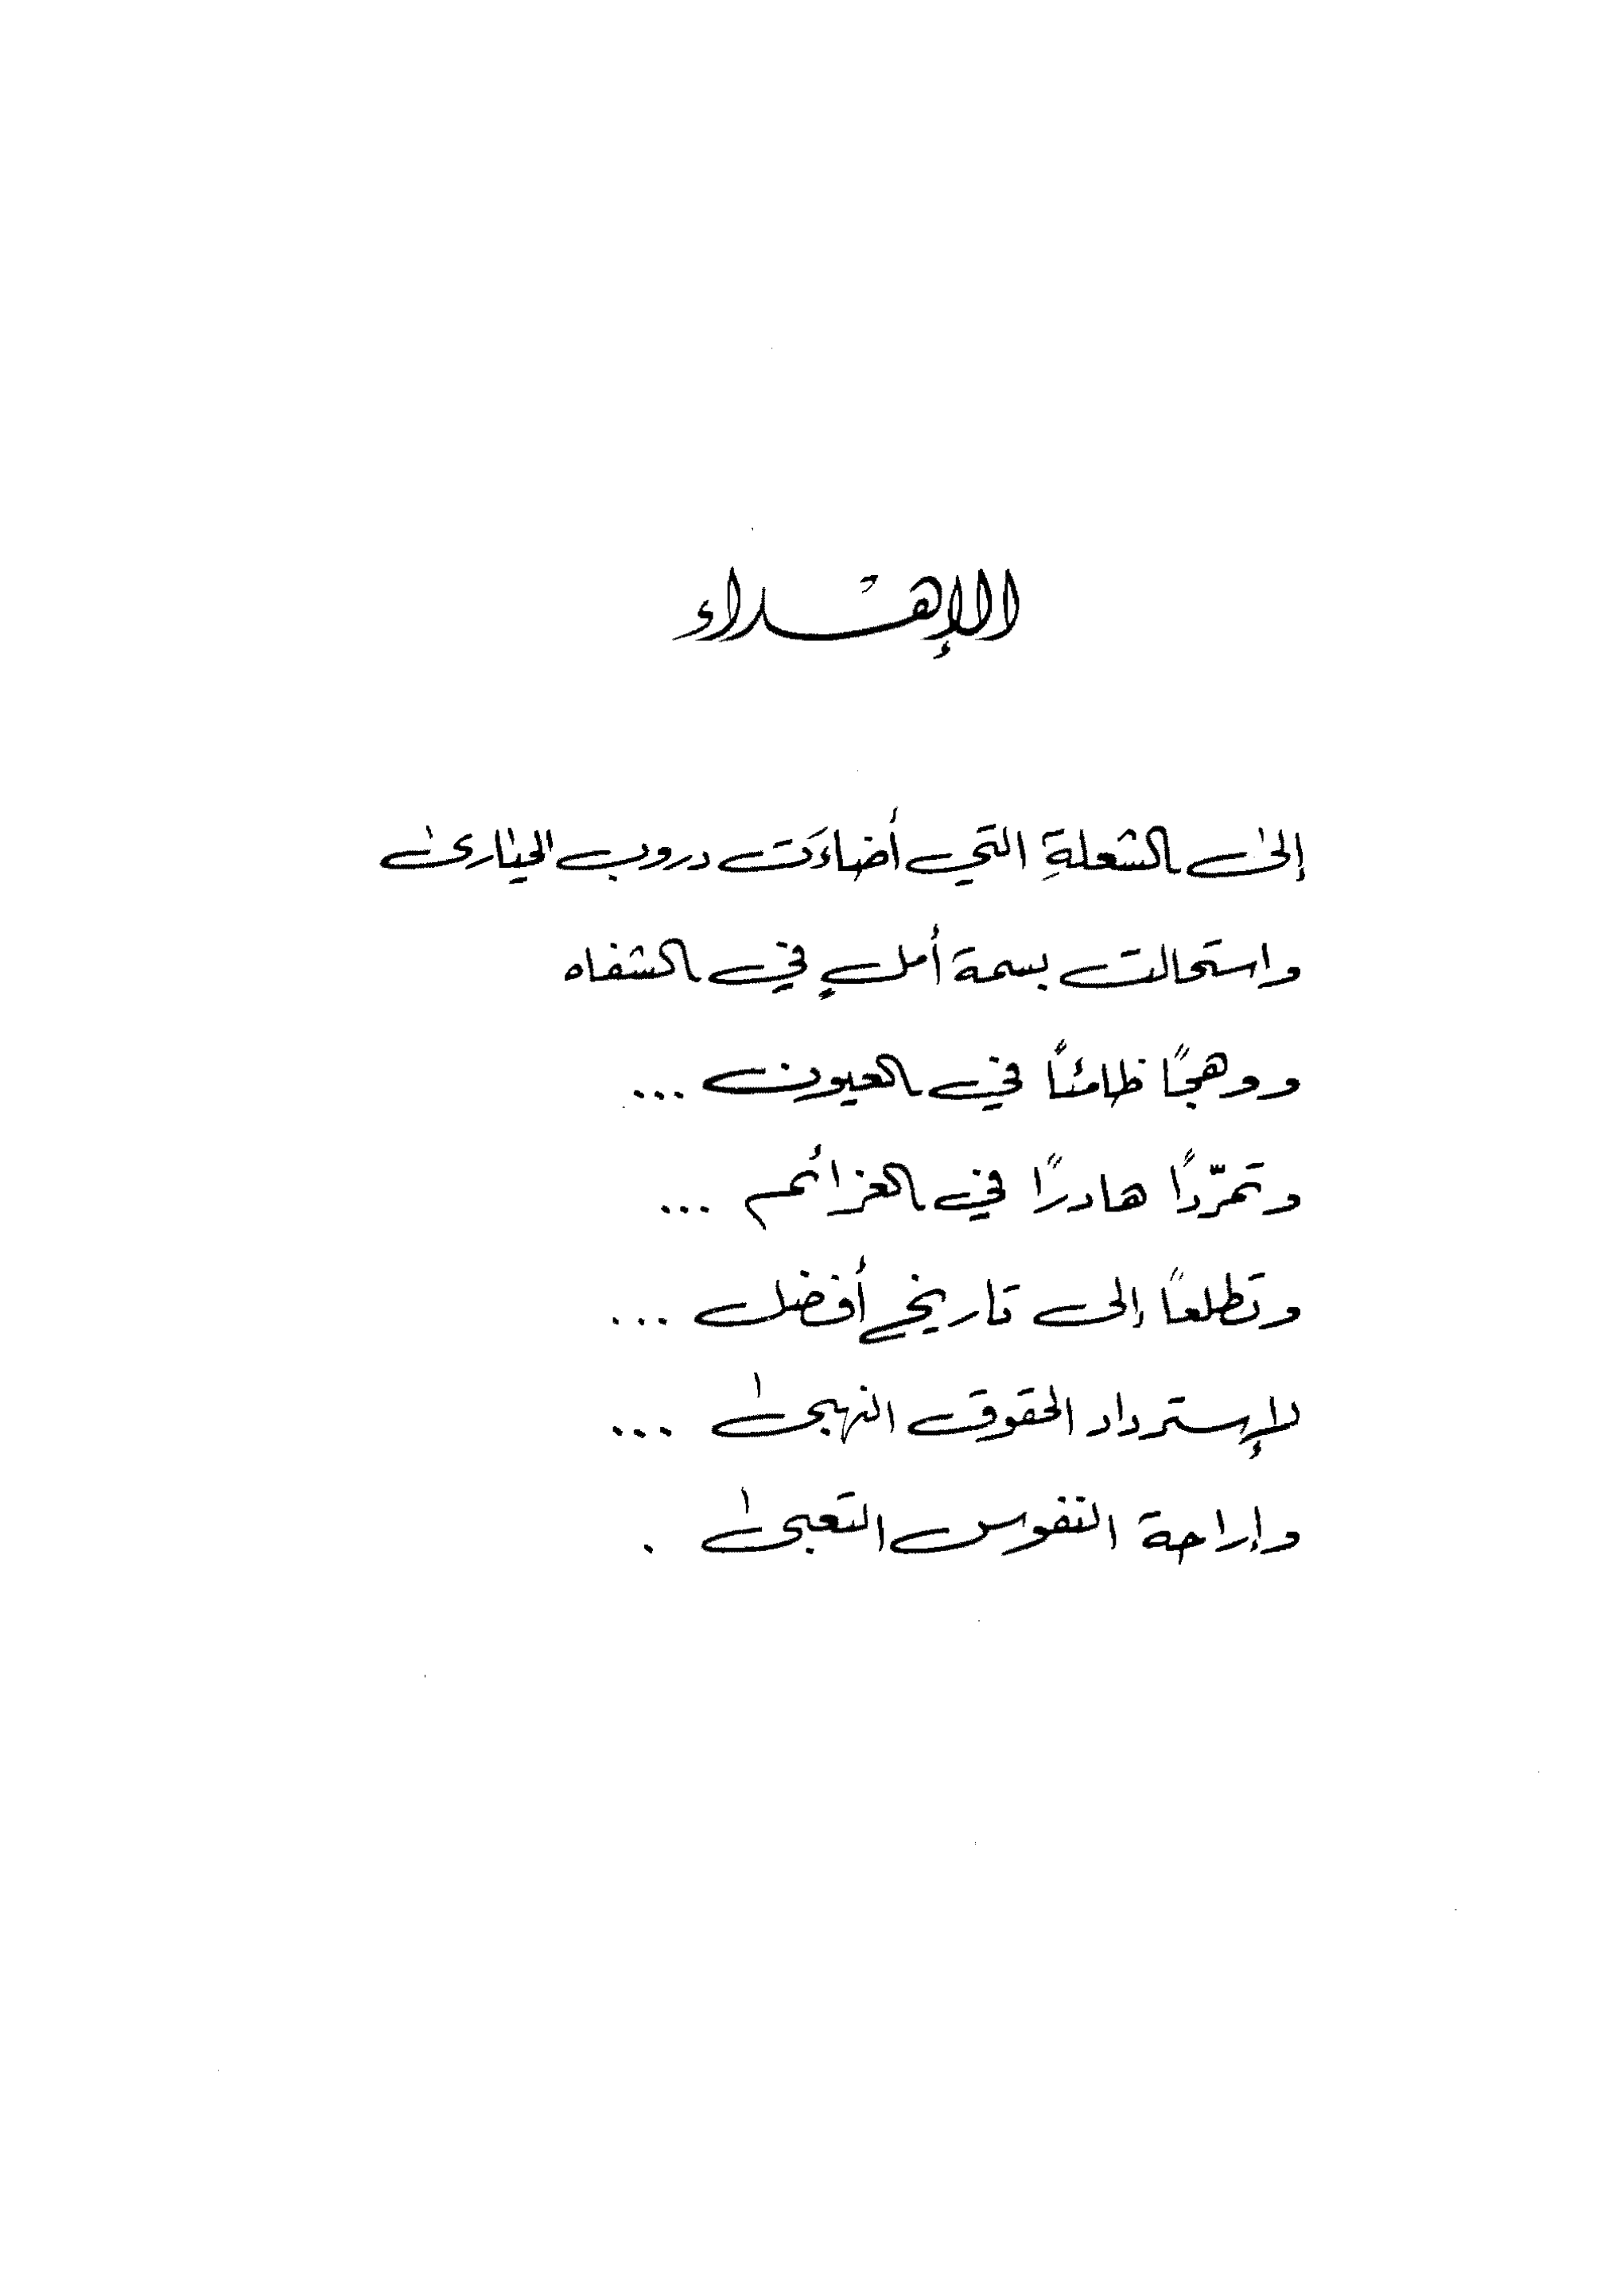 الإهداء
إلىٰ الشعلةِ التي أضاءَت دروب الحيٰارىٰ
واستحالت بسمة أملٍ في الشفاه
ووهجًا ظامئاً في العيون ...
وتمرّدًا هادرًا في العزائم ...
وتطلعاً إلى تاريخ أفضل ...
لإسترداد الحقوق النهبىٰ ...
وإراحة النفوس التعبىٰ .